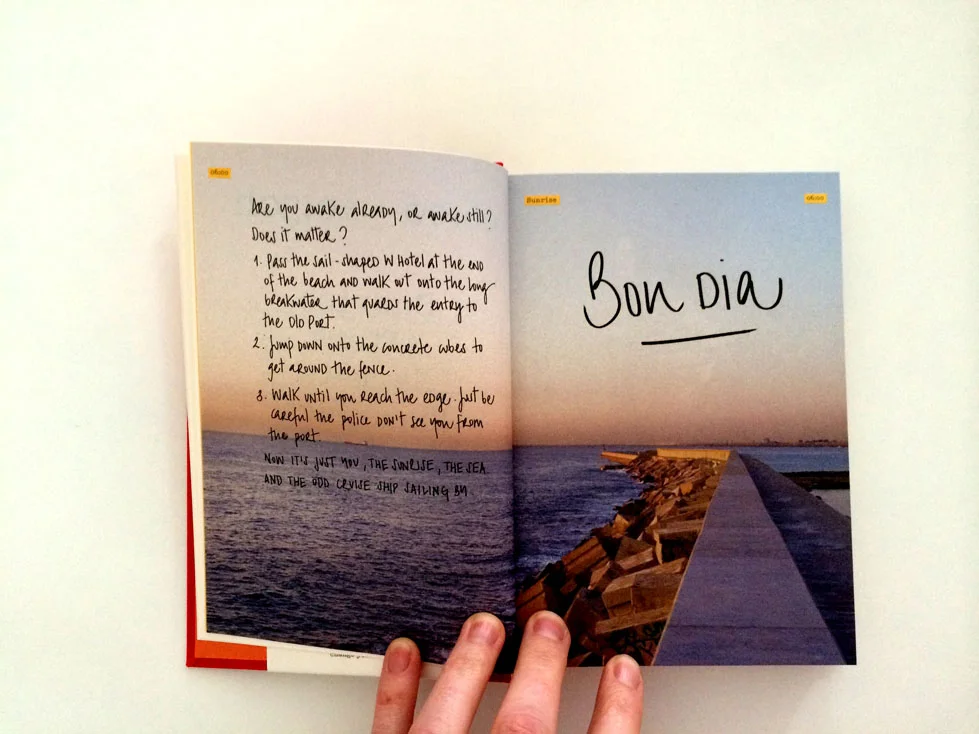 06:00
Are you awake already, or awake still?
Does it matter?
1. Pass the sail-shaped W Hotel at the end
of the beach and walk out onto the long
breakwater that guards the entry to
the Old Port.
2. Jump down onto the concrete cubes to
get around the fence.
3. Walk until you reach the edge. Just be
careful the police don't see you from
the port.
NOW IT'S JUST YOU, THE SUNRISE, THE SEA
AND THE ODD CRUISE SHIP SAILING BY.
Sunrise
06:00
Bon Dia